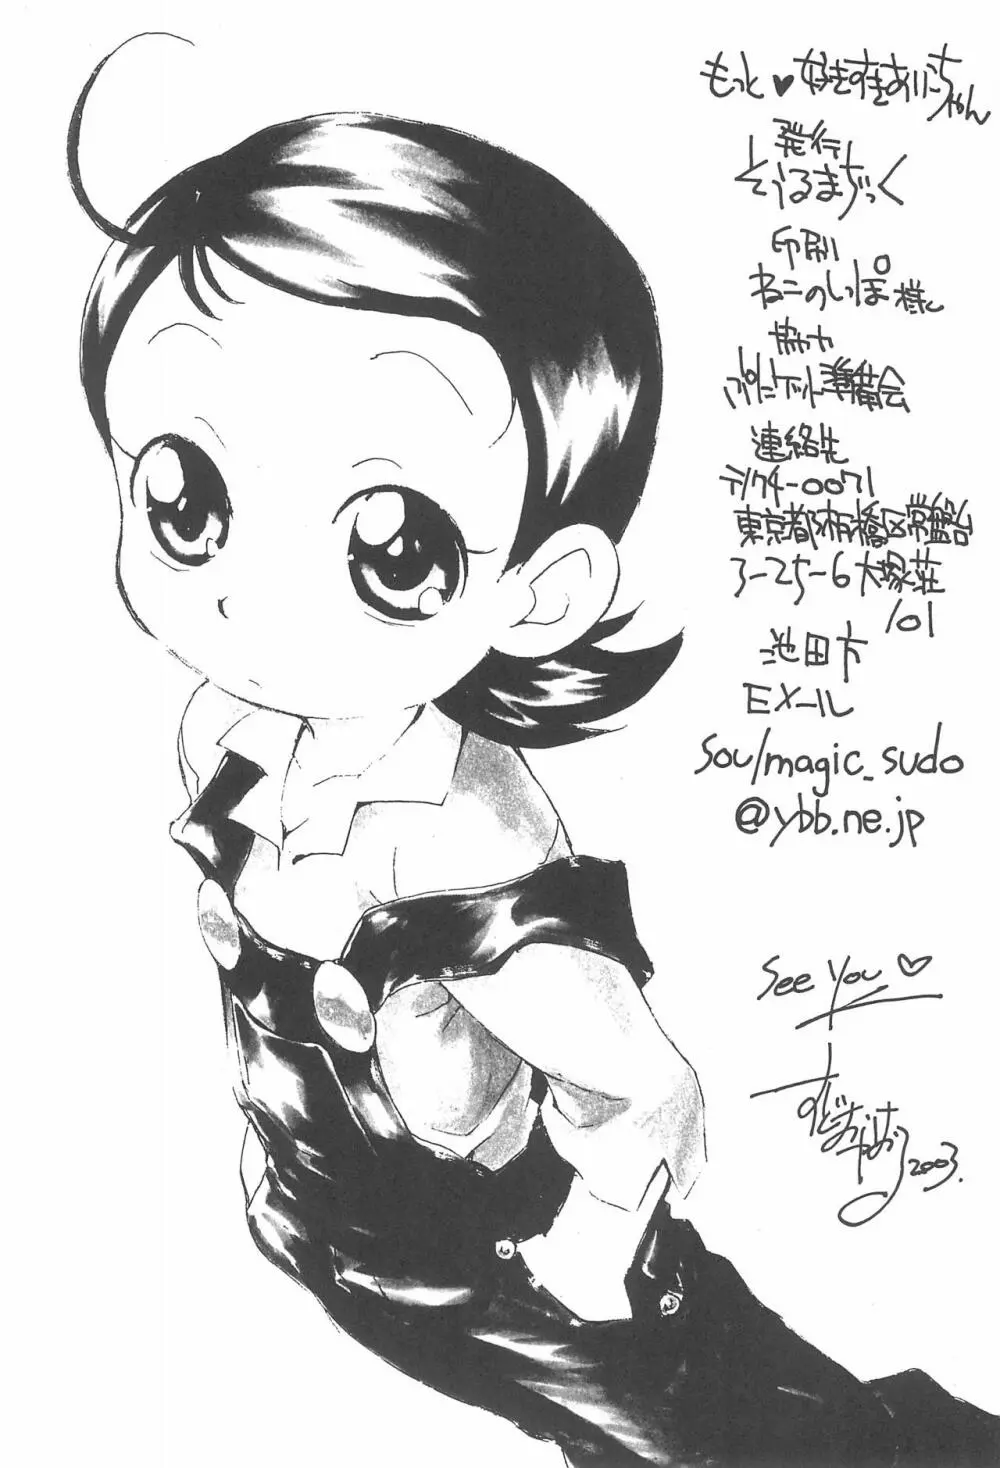 もっと♥好きすきおにーちゃん
発行
そうるまぢっく
印刷
ねこのしっぽ様
協力
ぷにケット準備会
連絡先
〒174-0071
東京都板橋区常盤台
3-25-6大塚荘
101
池田方
EXール
soulmagic_sudo
@ybb.ne.jp
See you♡
2003.